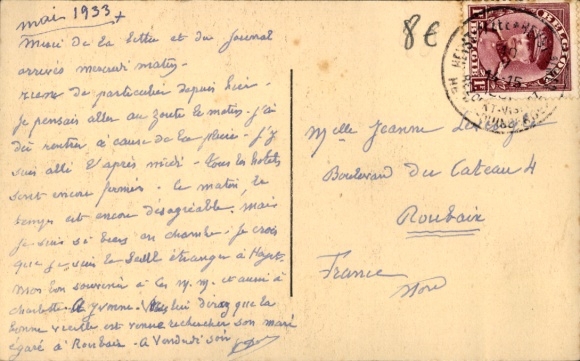 mai 1933
Merci de la lettre et du journal
arrivés mercredi matin -
rien de particulier depuis hier -
je pensais aller au zoute le matin - j'ai
dû rentrer à cause de la pluie - j'y
suis allé l'après midi - tous les hotels
sont encore fermés - Ce matin, le
temps est encore désagréable, mais
je suis si bien en chambre - je crois
que je suis le seul étranger à
Mon bon souvenir à et aussi à
Charlotte - A Yvonne - lui direz que la
bonne vieille est venue rechercher son mari
égaré à Roubaix - A Vendredi soir
8€
BELGIQUE
1F
Melle Jeanne
Boulevard du Cateau 4
Roubaix
France
Nord